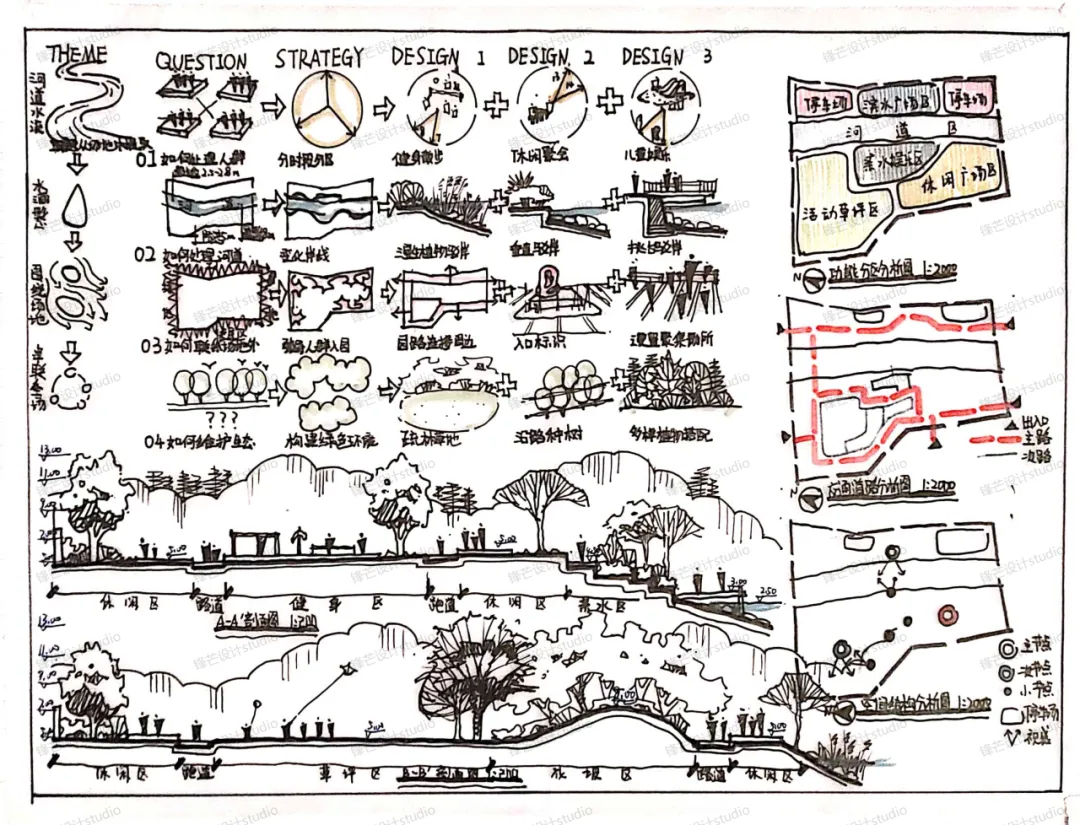 THEME
QUESTION
STRATEGY
DESIGN 1
DESIGN 2
DESIGN 3
河道水流
水滴
围绕场地
01 如何处理人群
分时段分区
健身散步
休闲聚会
儿童娱乐
02 如何处理河道
变化岸线
湿生植物驳岸
垂直驳岸
挑台驳岸
03 如何联系场地外
引导人群入园
园路连接周边
入口标识
设置聚集场所
? ? ?
04 如何维护生态
构建绿色环境
疏林草地
沿路种树
多种植物搭配
停车场
滨水广场区
停车场
河道区
亲水娱乐区
休闲广场区
活动草坪区
N
功能分区分析图 1:2000
出入口
主路
次路
N
交通道路分析图 1:2000
主节点
次节点
小节点
停车场
视线
空间结构分析图 1:2000
13.00
11.00
休闲区
跑道
健身区
跑道
休闲区
亲水区
A-A'剖面图 1:200
13.00
11.00
休闲区
跑道
草坪区
B-B'剖面图 1:200
休闲区
跑道
锋芒设计studio